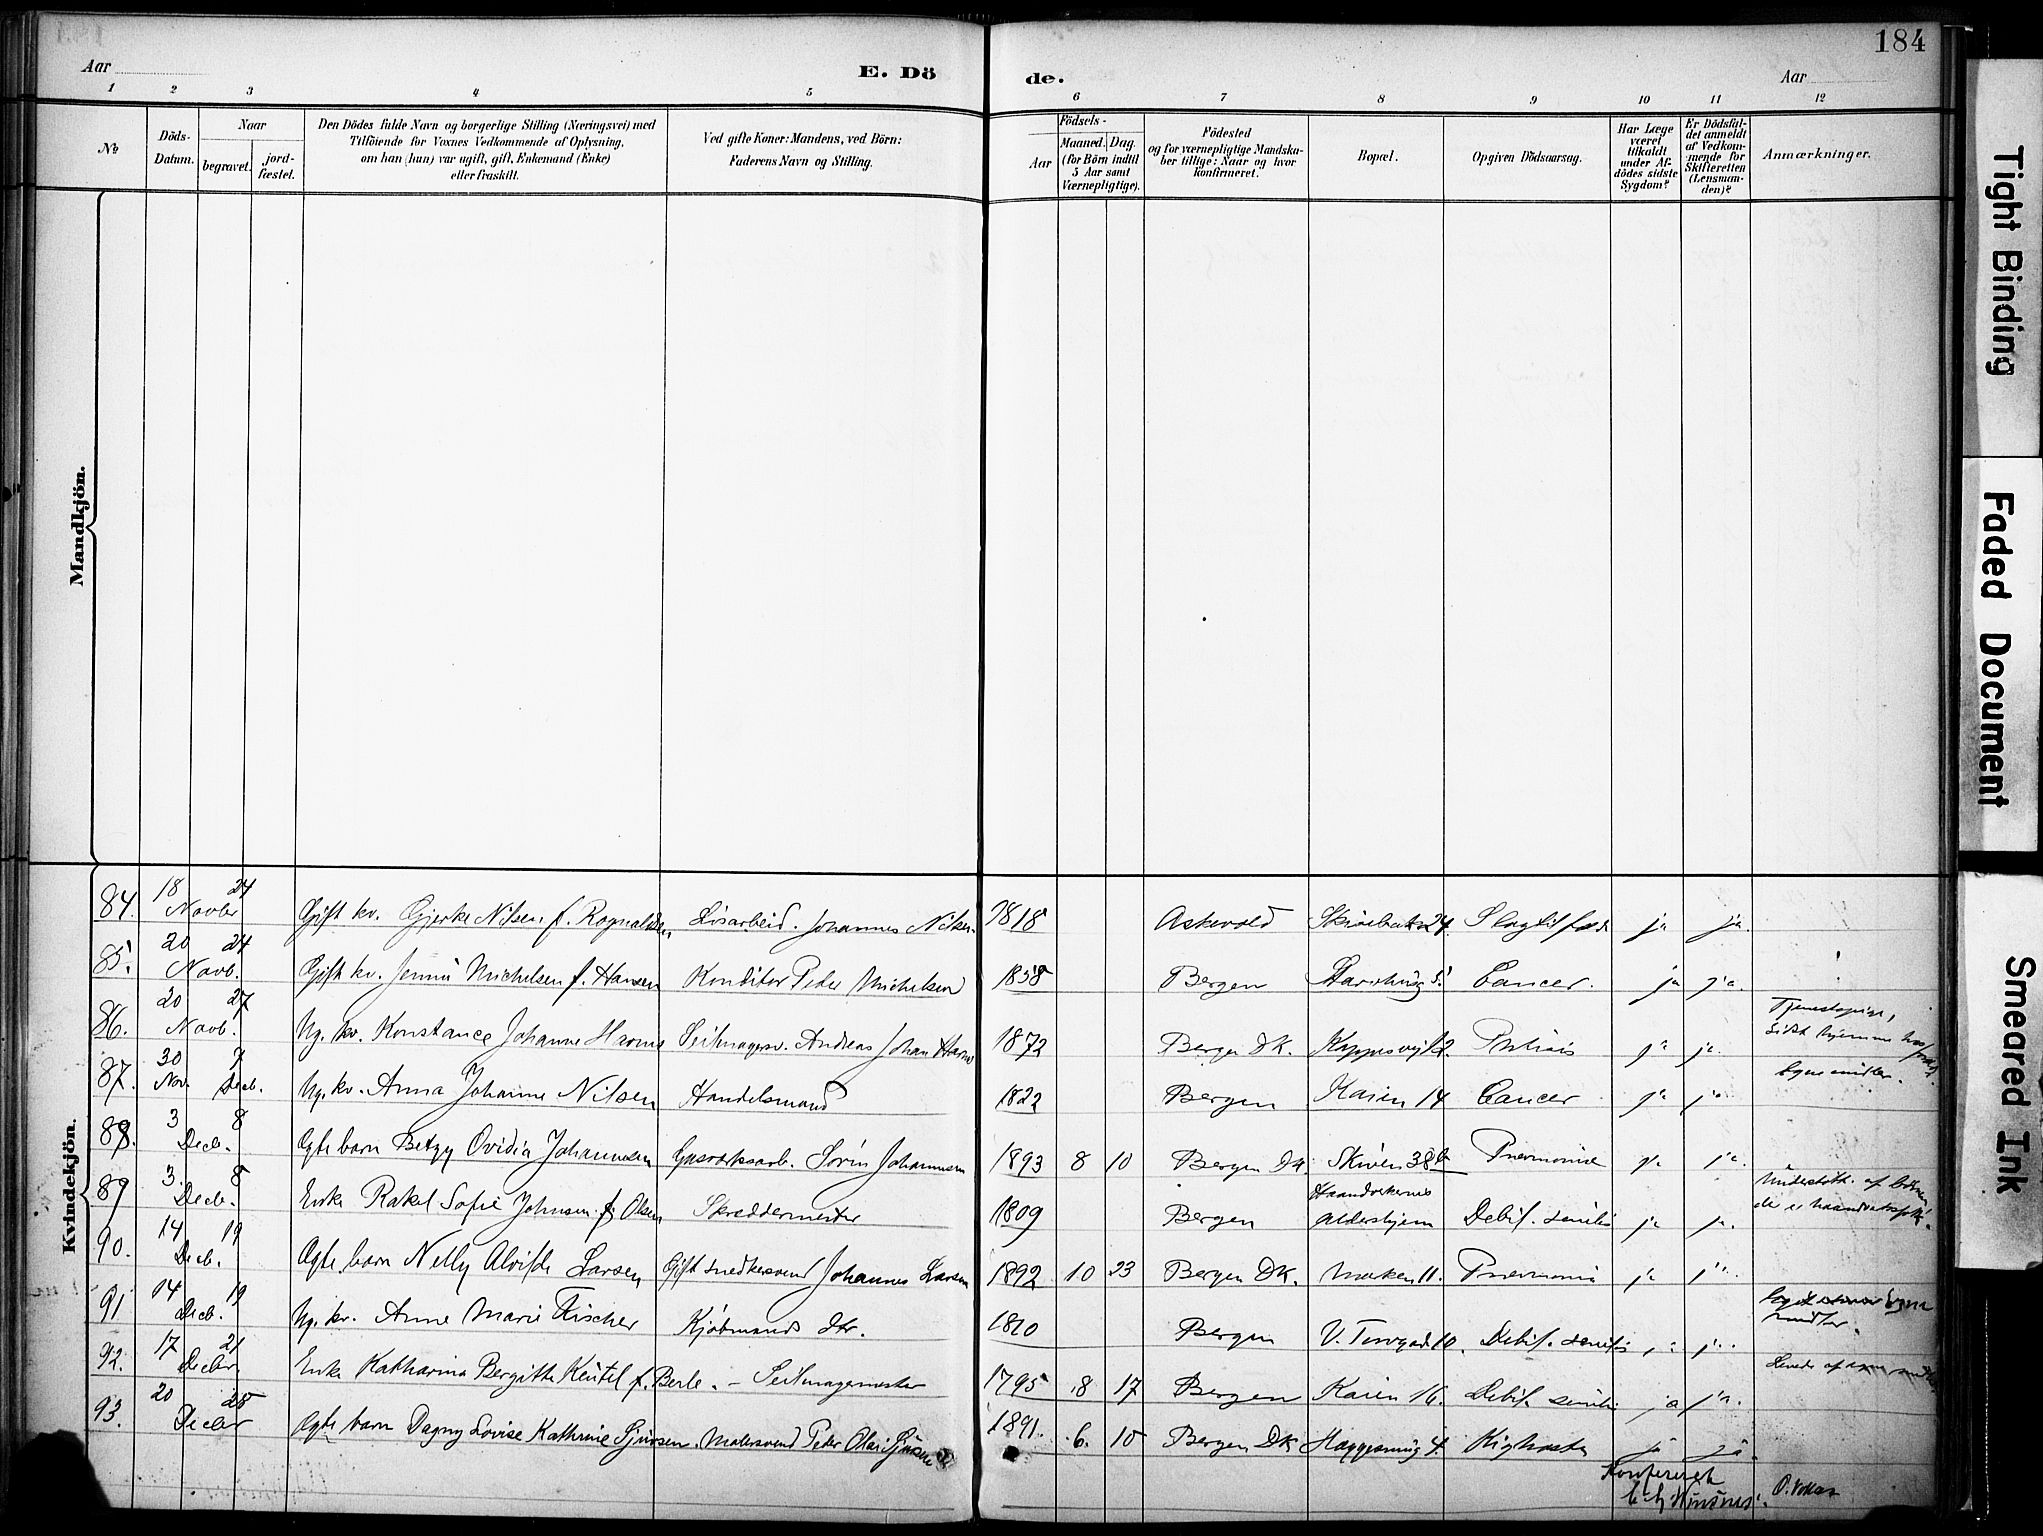 184
Aar
E. Dö
de.
Aar
1 2 3 4 5 6 7 8 9 10 11 12
№
Döds-
Datum.
Naar
begravet.
jord-
fæstet.
Den Dödes fulde Navn og borgerlige Stilling (Næringsvei) med
Tilföiende for Voxnes Vedkommende af Oplysning,
om han (hun) var ugift, gift, Enkemand (Enke)
eller fraskilt.
Ved gifte Koner: Mandens, ved Börn:
Faderens Navn og Stilling.
Födsels-
Aar
Maaned. Dag.
(for Börn indtil
5 Aar samt
Værnepligtige).
Födested
og for værnepligtige Mandska-
ber tillige: Naar og hvor
konfirmeret.
Bopæl.
Opgiven Dödsaarsag.
Har Læge
været
tilkaldt
under Af-
dödes sidste
Sygdom?
Er Dödsfal-
det anmeldt
af Vedkom-
mende for
Skifteretten
(Lensman-
den)?
Anmærkninger.
Mandkjön.
Kvindekjön.
84. 18 Novbr 24 Gift kv. Gjerke Nilsen f. Rognaldsen Lösarbeid. Johannes Nilsen 1818 Askevold 24. ja ja.
85. 20 Novb. 24 Gift kv. Michelsen f. Hansen Konditor Peder Michelsen 1858 Bergen 5. Cancer. ja ja.
86. 20 Novb. 27 Ug. kv. Konstance Johanne Harms Seilmagersv. Andreas Johan Harms 1872 Bergen DK. 12. ja ja. Tjenestepige,
sidst hjemme hos
87. 30 Nov. 7 Decb. Ug. kv. Anna Johanne Nilsen Handelsmand 1822 Bergen 14 Cancer ja ja egne midler.
88. 3 Decb. 8 Ægte barn Betzy Ovidia Johannesen Gasværksarb. Sörin Johannesen 1893 8 10 Bergen DK Skivén 38b Pneumonie ja ja.
89 3. Decb. 8 Enke Rakel Sofie Johnsen f. Olsen Skræddermester 1809 Bergen Haandverkernes
Aldershjem Debil. senilis ja ja. Understött. af
90. 14 Decb. 19 Ægte barn Nelly Alvilde Larsen Gift snedkersvend Johannes Larsen 1892 10 23 Bergen DK. Marken 11. Pneumonie ja ja.
91 14 Decb. 19 Ug. kv. Anne Marie Fischer Kjöbmands dtr. 1810 Bergen V. Torvgad 10. Debil. senilis ja ja. egne
midler.
92. 17 Decbr 21 Enke Katharina Bergitte Keütel f. Berle. – Seilmagermester 1795 8 17 Bergen 16. Debil. senilis ja ja. Levede af egne midler
93. 20 Decbr 28 Ægte barn Dagny Lovise Kathrine Sjursen. Malersvend Peder Olai Sjursen 1891. 6. 15 Bergen DK 4. Kighoste ja ja.
Konfereret
Tight Binding
Faded Document
Smeared Ink